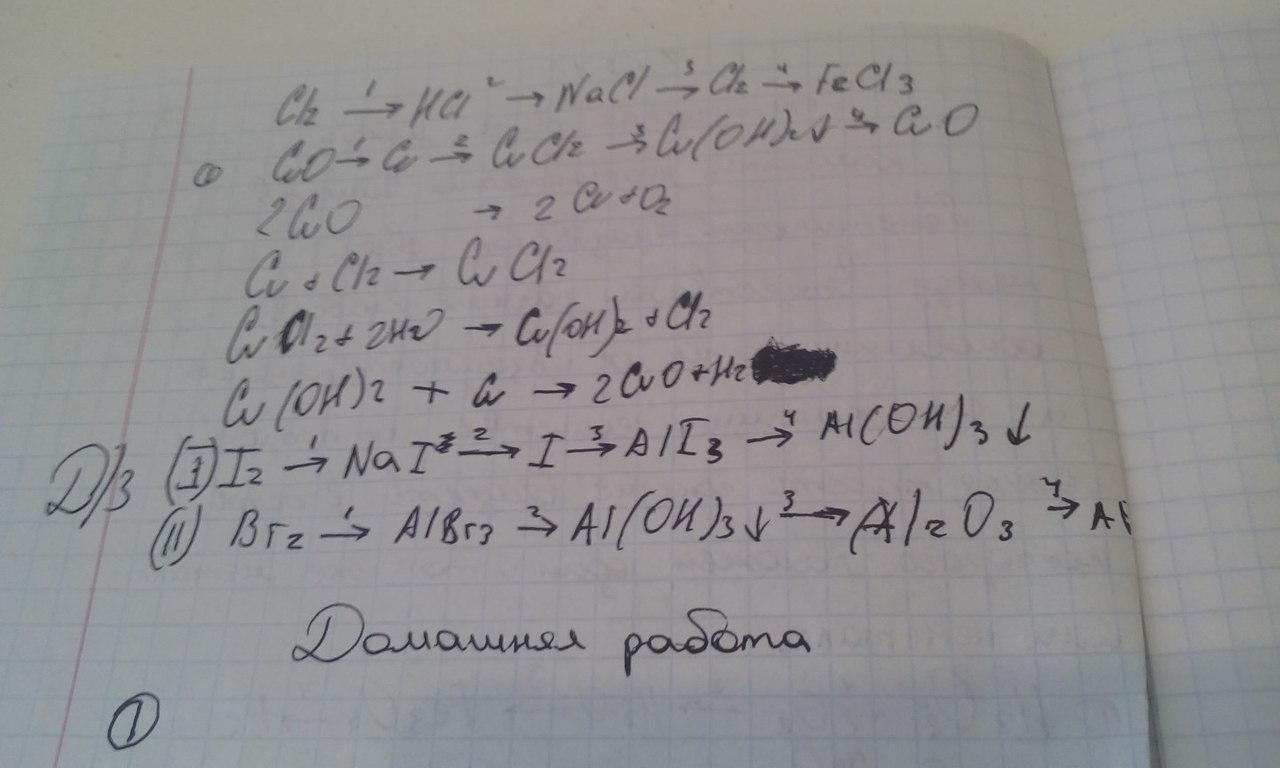 Cl2 1→ HCl 2→ NaCl 3→ Cl2 4→ FeCl3
CuO 1→ Cu 2→ CuCl2 3→ Cu(OH)2↓ 4→ CuO
2CuO → 2Cu+O2
Cu + Cl2 → CuCl2
CuCl2 + 2H2O → Cu(OH)2 + Cl2
Cu(OH)2 + Cu → 2CuO+H2
Д/з (I) I2 1→ NaI 2→ I 3→ AlI3 4→ Al(OH)3↓
(II) Br2 1→ AlBr3 2→ Al(OH)3↓ 3→ Al2O3 4→ Al
Домашняя работа
I